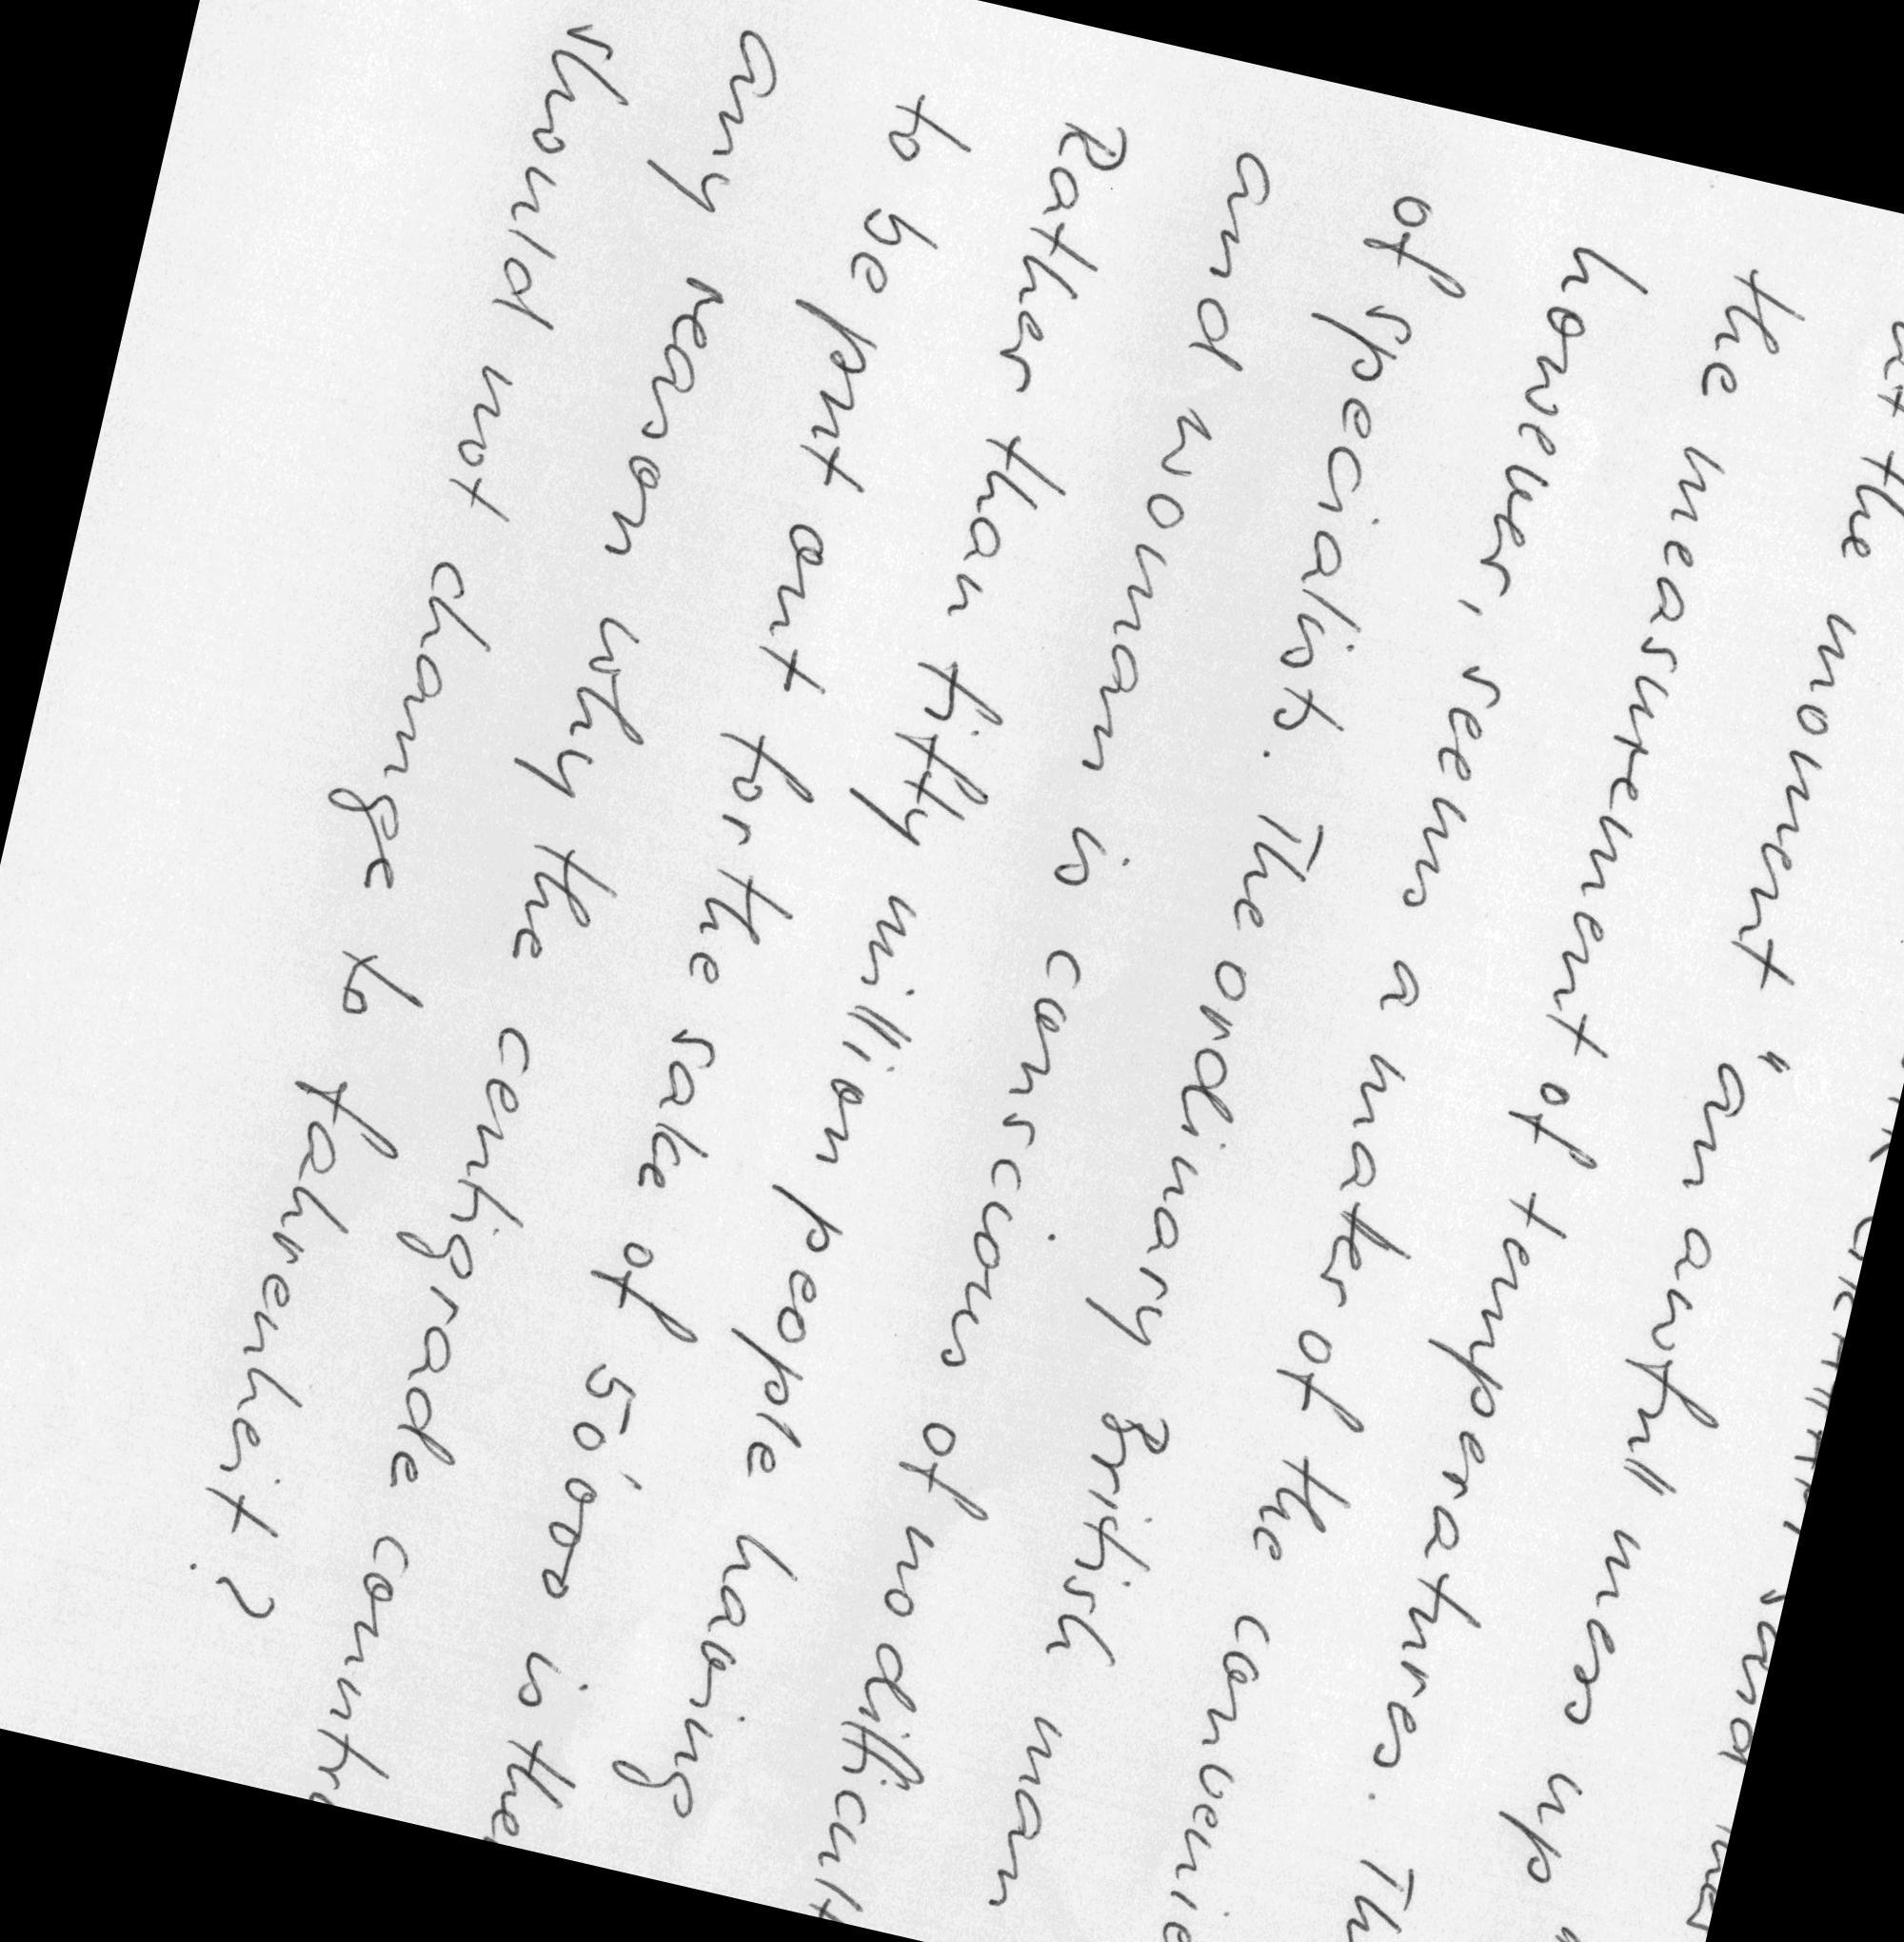 at the moment "an awful mess up
the measurement of temperatures.
however, seems a matter of the
of specialists. The ordinary British man
and woman is conscious of no difficult
Rather than fifty million people having
to be put out for the sake of 50'000 is the
any reason why the centigrade
should not change to fahrenheit?